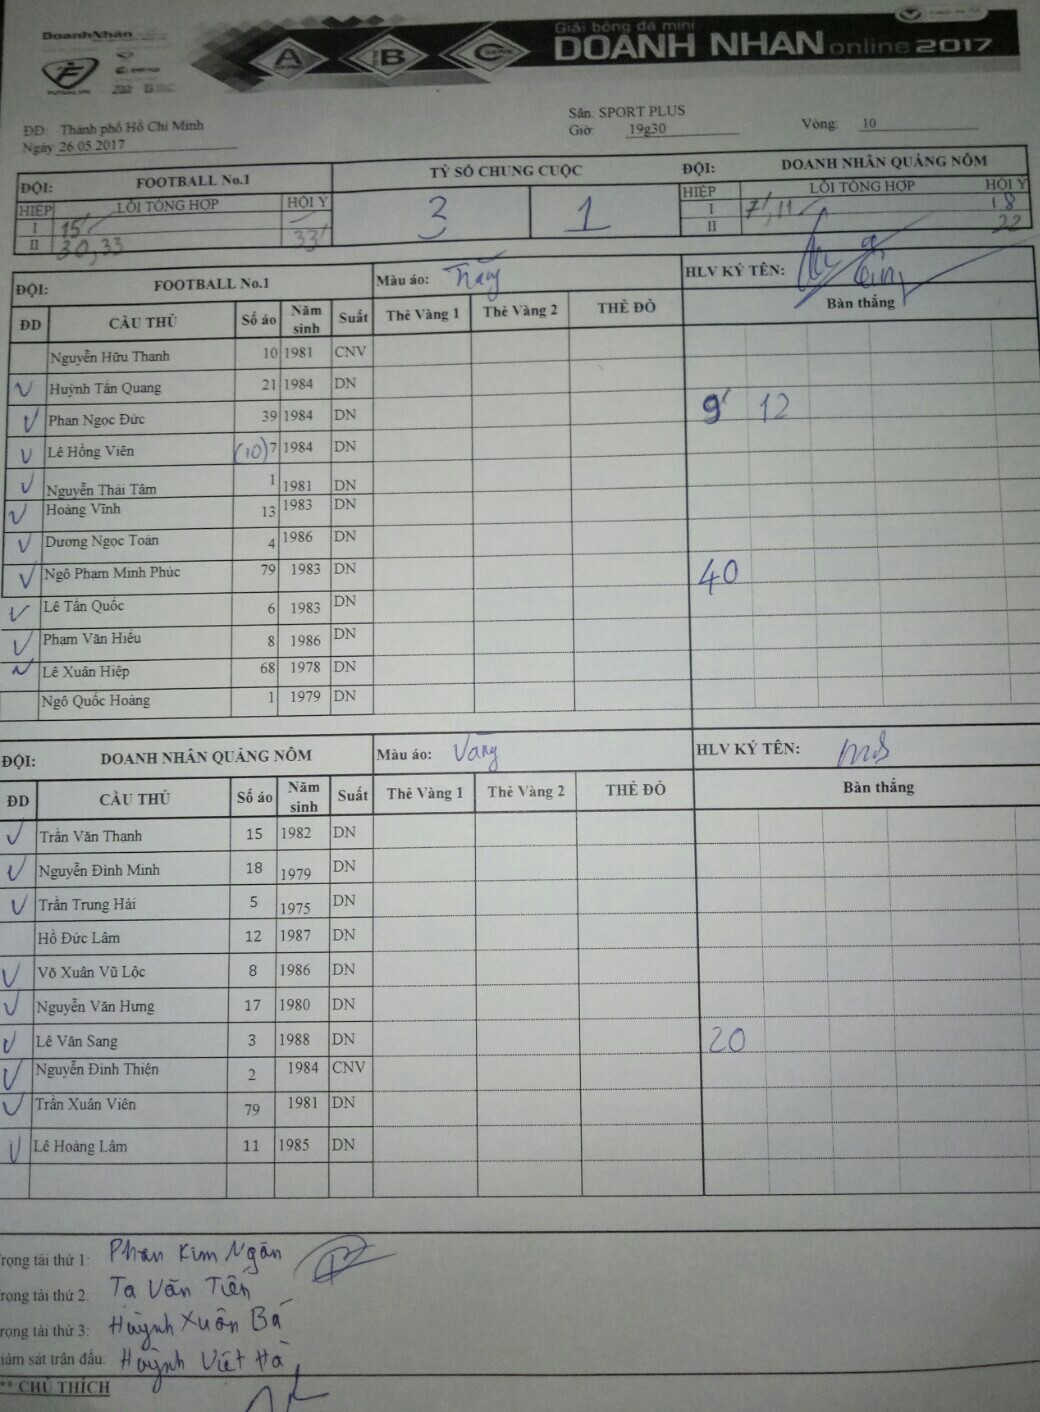 DoanhNhân
A B C
Giải bóng đá mini
DOANH NHAN online 2017
ĐD: Thành phố Hồ Chí Minh
Ngày 26.05.2017
Sân: SPORT PLUS
Giờ: 19g30
Vòng: 10
ĐỘI: FOOTBALL No.1 TỶ SỐ CHUNG CUỘC ĐỘI: DOANH NHÂN QUẢNG NÔM
HIỆP LỖI TỔNG HỢP HỘI Ý 3 1 HIỆP LỖI TỔNG HỢP HỘI Ý
I 15' I 7', 11 18
II 30, 33 33' II 22
ĐỘI: FOOTBALL No.1 Màu áo: Trắng HLV KÝ TÊN:
ĐD CẦU THỦ Số áo Năm sinh Suất Thẻ Vàng 1 Thẻ Vàng 2 THẺ ĐỎ Bàn thắng
Nguyễn Hữu Thanh 10 1981 CNV
Huỳnh Tấn Quang 21 1984 DN
Phan Ngọc Đức 39 1984 DN 9' 12
Lê Hồng Viên (10) 7 1984 DN
Nguyễn Thái Tâm 1 1981 DN
Hoàng Vĩnh 13 1983 DN
Dương Ngọc Toàn 4 1986 DN
Ngô Phạm Minh Phúc 79 1983 DN 40
Lê Tấn Quốc 6 1983 DN
Phạm Văn Hiếu 8 1986 DN
Lê Xuân Hiệp 68 1978 DN
Ngô Quốc Hoàng 1 1979 DN
ĐỘI: DOANH NHÂN QUẢNG NÔM Màu áo: Vàng HLV KÝ TÊN:
ĐD CẦU THỦ Số áo Năm sinh Suất Thẻ Vàng 1 Thẻ Vàng 2 THẺ ĐỎ Bàn thắng
Trần Văn Thanh 15 1982 DN
Nguyễn Đình Minh 18 1979 DN
Trần Trung Hải 5 1975 DN
Hồ Đức Lâm 12 1987 DN
Võ Xuân Vũ Lộc 8 1986 DN
Nguyễn Văn Hưng 17 1980 DN
Lê Văn Sang 3 1988 DN 20
Nguyễn Đình Thiện 2 1984 CNV
Trần Xuân Viên 79 1981 DN
Lê Hoàng Lâm 11 1985 DN
rọng tài thứ 1: Phan Kim Ngân
rọng tài thứ 2: Tạ Văn Tiến
rọng tài thứ 3: Huỳnh Xuân Bá
iám sát trận đấu: Huỳnh Việt Hà
** CHÚ THÍCH